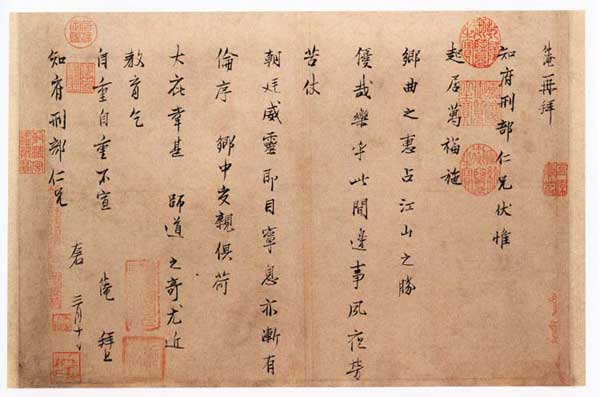 淹再拜
知府刑部仁兄伏惟
起居萬福施
鄉曲之惠占江山之勝
優哉樂乎此間邊事夙夜勞
苦仗
朝廷威靈即目寧息亦漸有
倫序鄉中交親俱荷
大庇幸甚師道之奇尤近
教育乞
自重自重不宣 淹拜上
知府刑部仁兄 三月十日